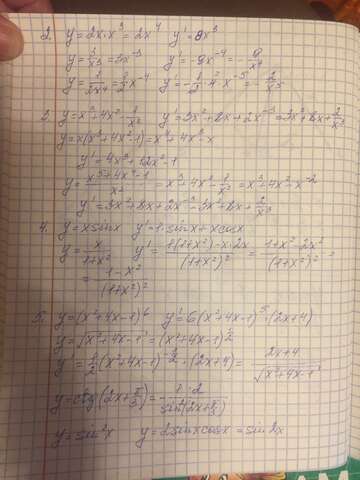 2. y=2x·x³=2x⁴ y'=8x³
y=3/x³=3x⁻³ y'=-9x⁻⁴=-9/x⁴
y=1/2x⁴=1/2x⁻⁴ y'=-1/2·4x⁻⁵=-2/x⁵
3. y=x³+4x²-1/x² y'=3x²+8x+2x⁻³=3x²+8x+2/x³
y=x(x³+4x²-1)=x⁴+4x³-x
y'=4x³+12x²-1
y=x⁵+4x⁴-1/x²=x³+4x²-1/x²=x³+4x²-x⁻²
y'=3x²+8x+2x⁻³=3x²+8x+2/x³
4. y=xsinx y'=1·sinx+xcosx
y=x/1+x² y'=1(1+x²)-x·2x/(1+x²)²=1+x²-2x²/(1+x²)²=
=1-x²/(1+x²)²
5. y=(x²+4x-1)⁶ y'=6(x²+4x-1)⁵·(2x+4)
y=√x²+4x-1=(x²+4x-1)^1/2
y'=1/2(x²+4x-1)^-1/2·(2x+4)=2x+4/√x²+4x-1
y=ctg(2x+π/3)=-1·2/sin²(2x+π/3)
y=sin²x y=2sinxcosx=sin2x